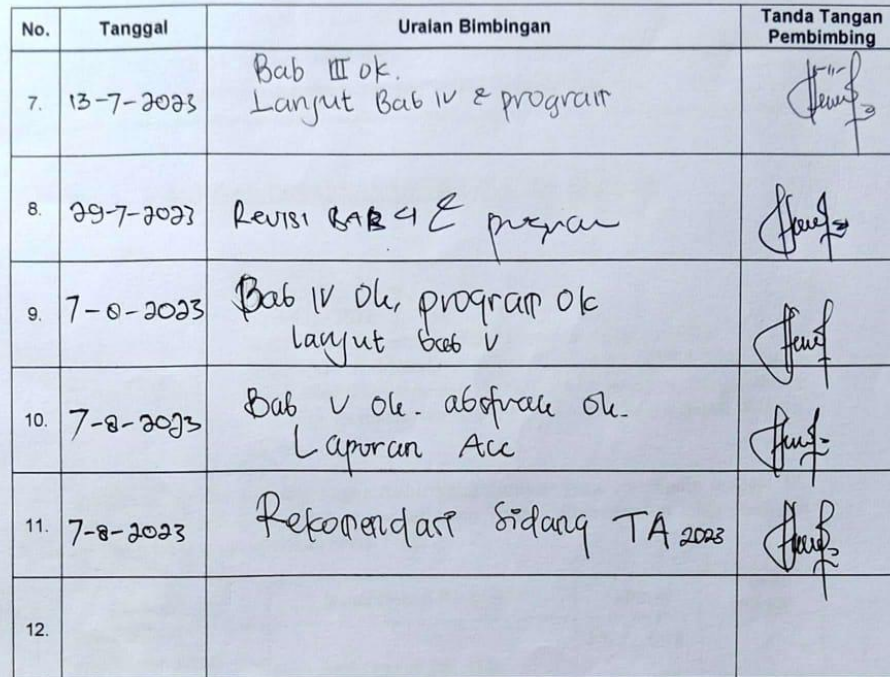 No. Tanggal Uraian Bimbingan Tanda Tangan Pembimbing
7. 13-7-2023 Bab III ok.
Lanjut Bab IV & program
8. 29-7-2023 Revisi BAB 4 & program
9. 7-8-2023 Bab IV Ok, program ok
lanjut bab V
10. 7-8-2023 Bab V Ok. abstrak ok.
Laporan Acc
11. 7-8-2023 Rekomendasi Sidang TA 2023
12.